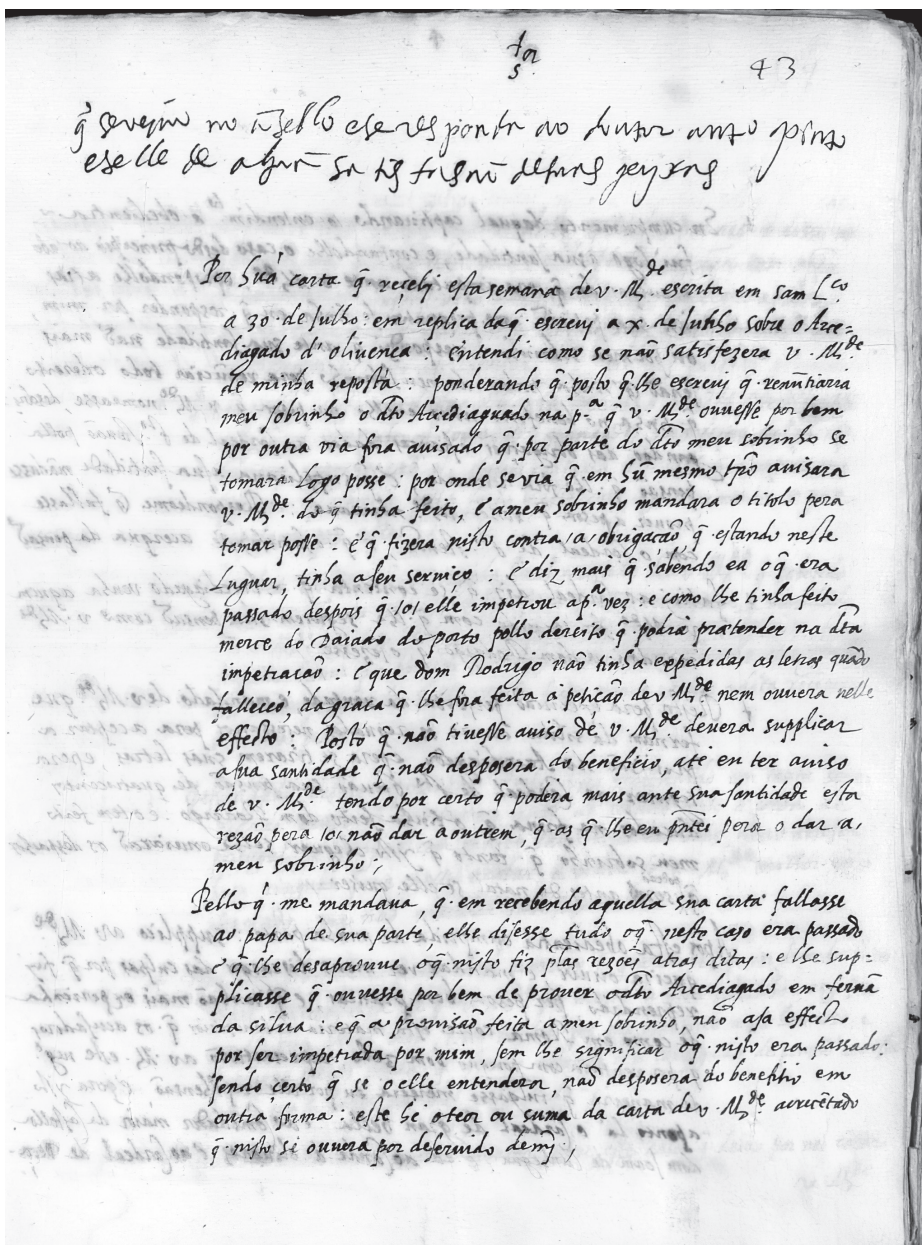 43
q̃ se vejão no cõselho e se responda ao doutor anto pinto
e se elle de
Per hũa carta q̃ recebj esta semana de v. M.de escrita em sam L.co
a 30. de Julho: em replica da q̃ escrevj a x. de Junho sobre o Arce=
diagado d'olivença: Entendi como se não satisfezera v. M.de
de minha reposta: ponderando q̃ posto q̃ lhe escrevj q̃ renũtiaria
meu sobrinho o dto Arcediaguado na p.a q̃ v. M.de ouvesse por bem
por outra via fora avisado q̃ por parte do dto meu sobrinho se
tomara logo posse: por onde se via q̃ em hũ mesmo tpõ avisara
v. M.de do q̃ tinha feito, e a meu sobrinho mandara o titolo pera
tomar posse: e q̃ fizera nisto contra a obrigacão q̃ estando neste
Luguar, tinha a seu serviço: E diz mais q̃ sabendo eu o q̃ era
passado despois q̃ elle impetrou a p.a vez: e como lhe tinha feito
merce do Daiado do porto pollo dereito q̃ podia prætender na dta
impetracão: E que dom Rodrigo não tinha expedidas as letras quãdo
falleceo, da graca q̃ lhe fora feita á peticão de v. M.de nem ouvera nelle
effecto: Posto q̃ não tivesse aviso de v. M.de devera supplicar
a sua santidade q̃ não desposera do beneficio, até eu ter aviso
de v. M.de tendo por certo q̃ podera mais ante sua santidade esta
rezão pera não dar a outrem, q̃ as q̃ lhe eu pñtei pera o dar a,
meu sobrinho;
Pello q̃ me mandava, q̃ em recebendo aquella sua carta fallasse
ao papa de sua parte, e lhe disesse tudo o q̃ neste caso era passado
e q̃ lhe desaprouve o q̃ nisto fiz plas rezões atras ditas: e lhe sup=
plicasse q̃ ouvesse por bem de prover o dto Arcediagado em fernã
da silva: e q̃ a provisão feita a meu sobrinho, não aja effecto
por ser impetrada por mim, sem lhe significar o q̃ nisto era passado:
sendo certo q̃ se o elle entendera, não desposera do benefitio em
outra forma: este he o teor ou suma da carta de v. M.de acrecẽtado
q̃ nisto si ouvera por deservido de mj;